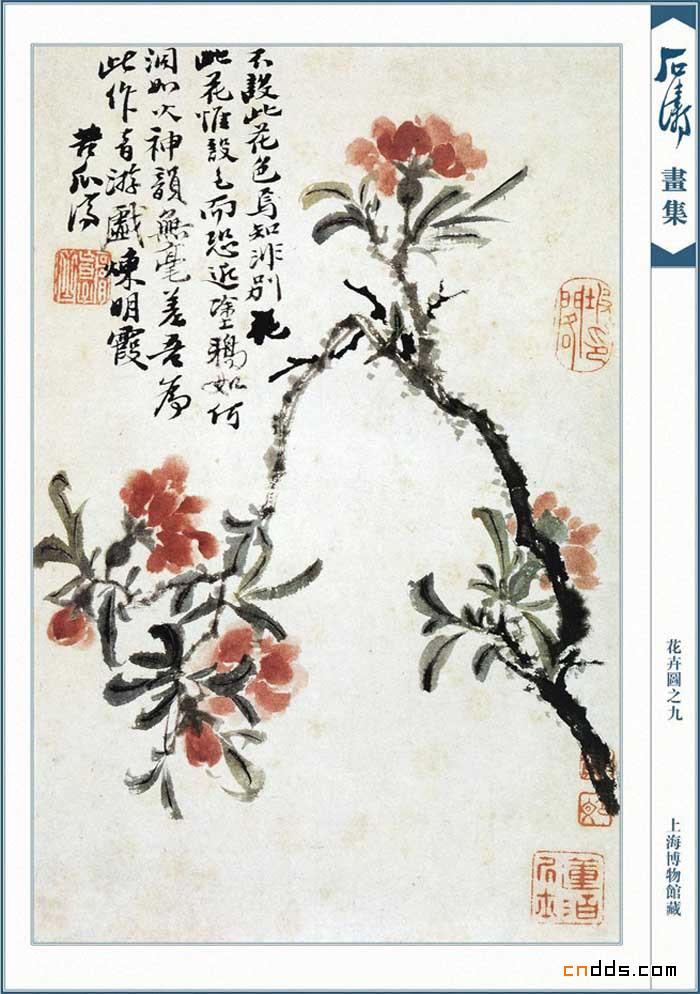 石濤
畫集
不設此花色焉知非別花
此花惟設色而恐近塗鴉如何
洞如火神韻無毫差吾為
此作音游戲煉明霞
苦瓜濟
花卉圖之九
上海博物館藏
cndds.com